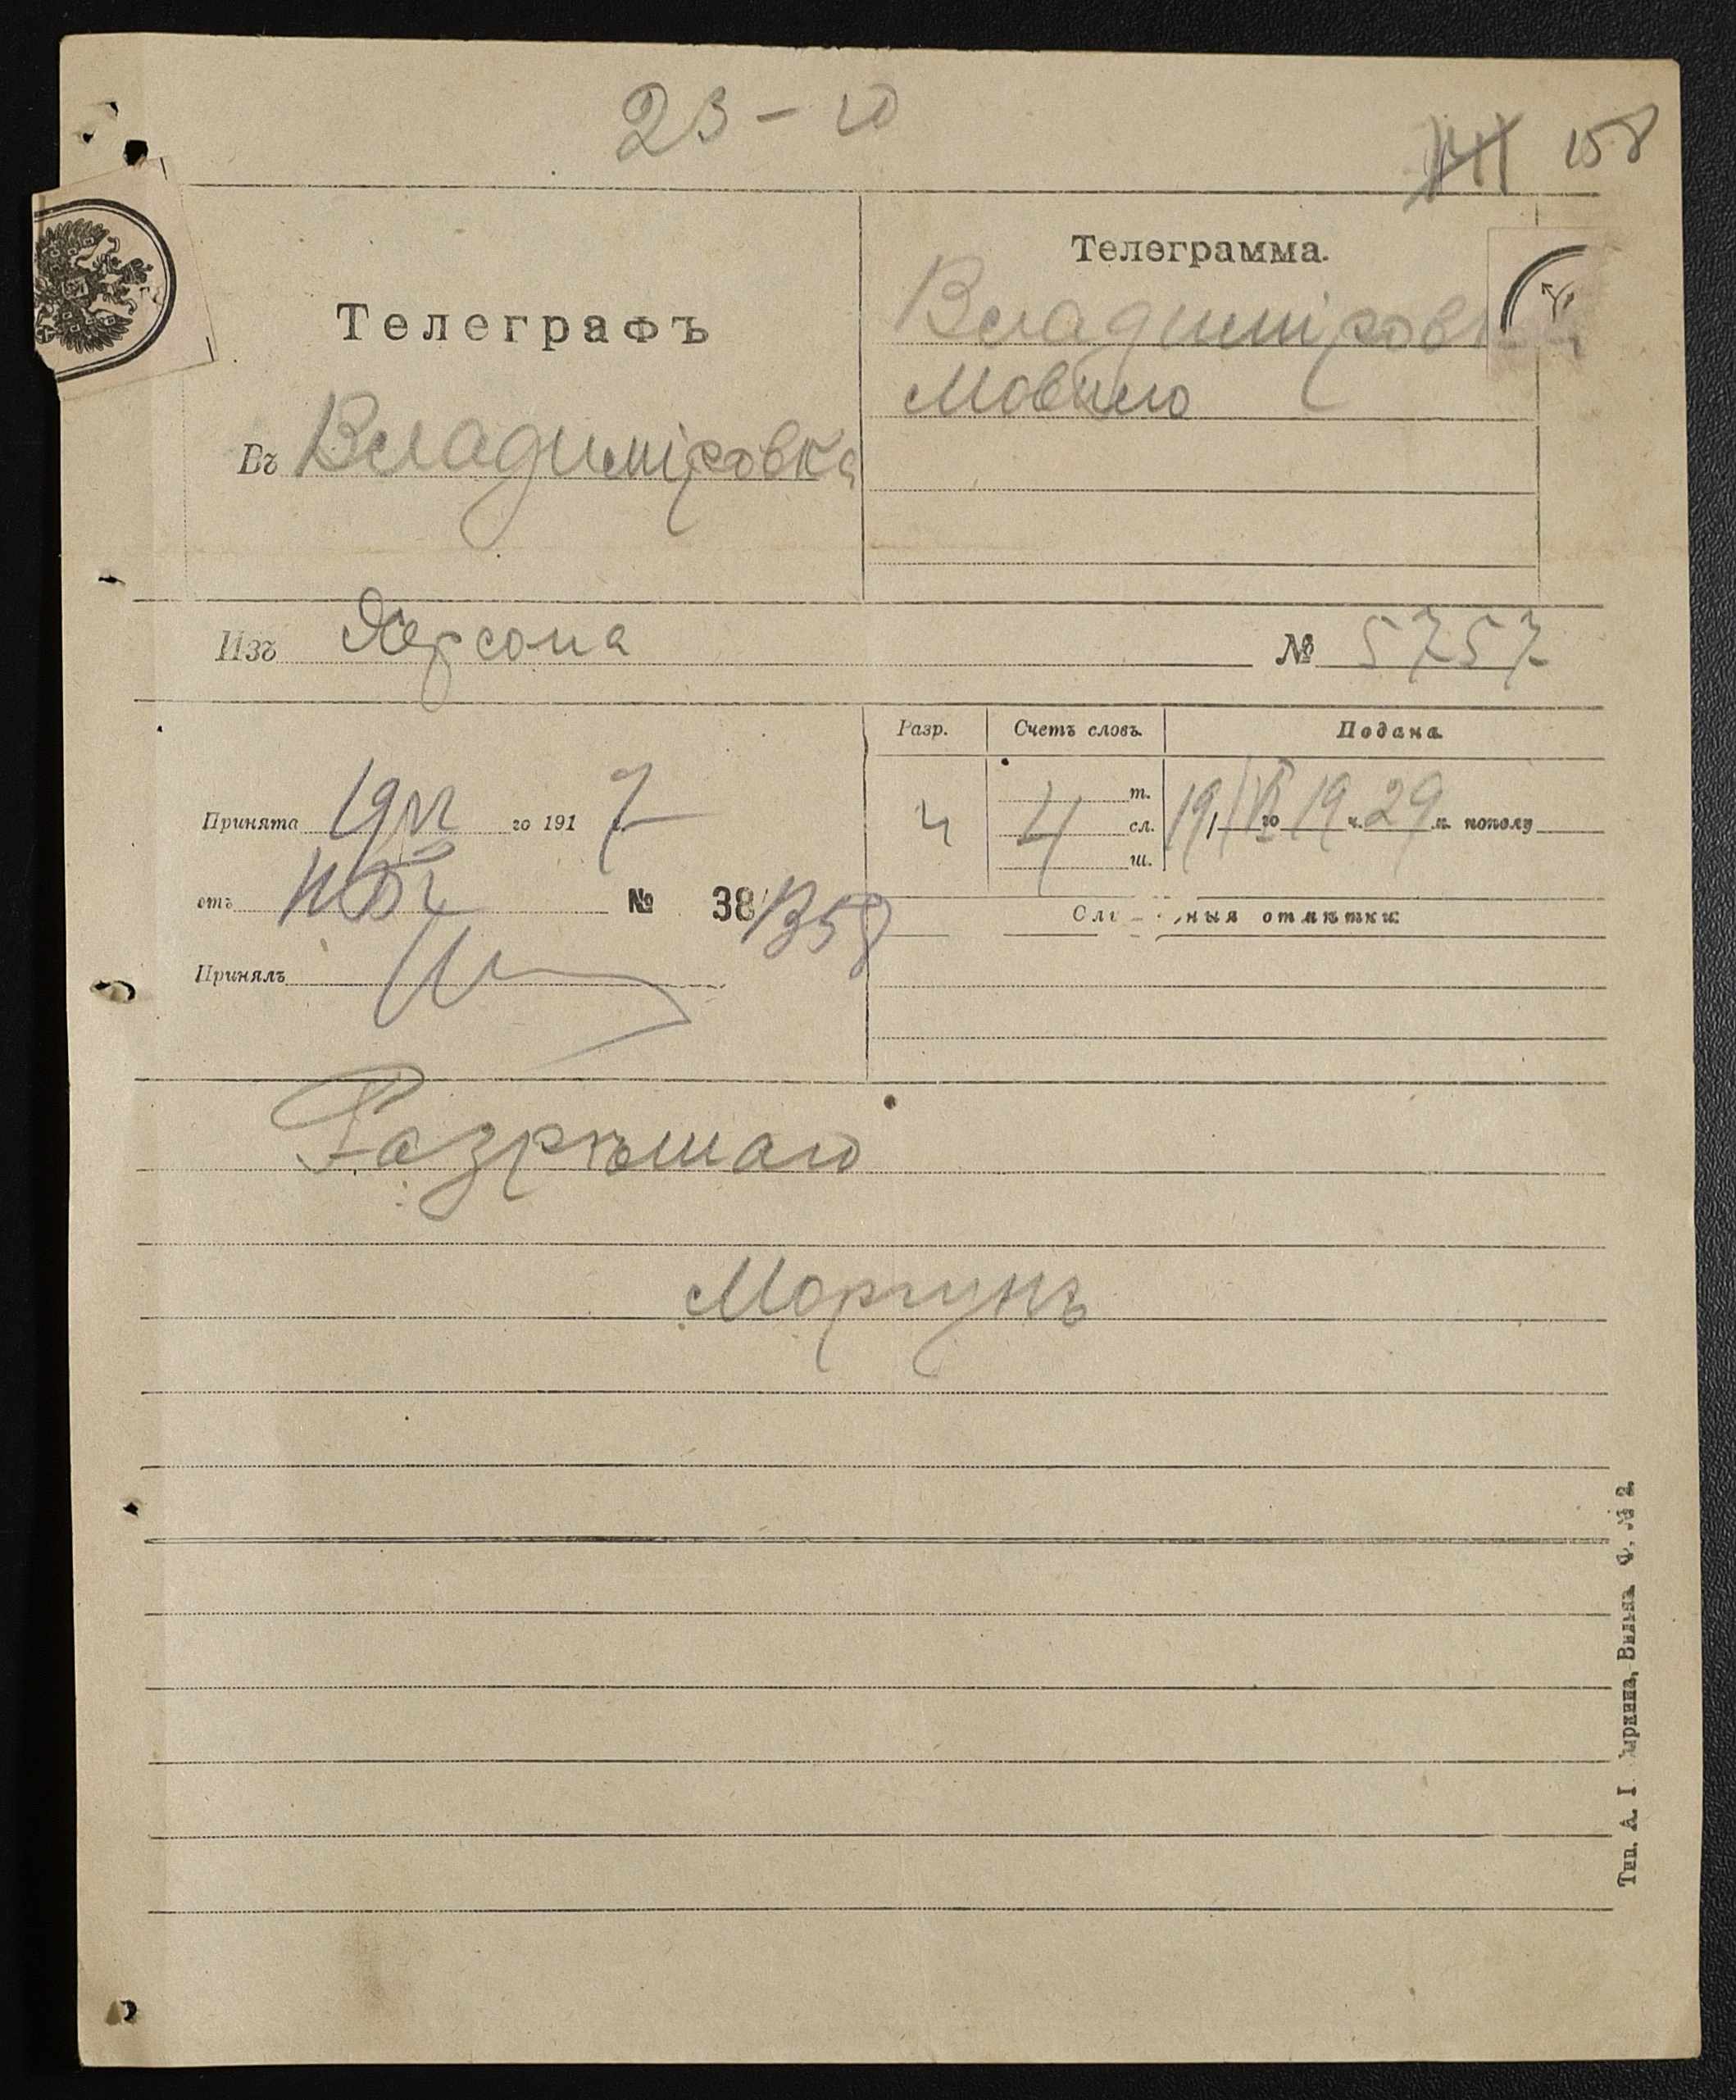 23 – 10
158
Телеграфъ
Въ Владиміровка
Телеграмма.
Владиміровк
Мовило
Изъ Херсона
№ 5757
Принята 19 VI го 1917
отъ № 38
1358
Принялъ
Разр.
Счетъ словъ.
Подана
4
4
т.
сл.
ш.
19/VI го 19 ч. 29 м. пополу
отмѣтки:
Разрѣшаю
Моргунъ
Тип. А. І. ыркина, Вильна. Ф. № 2.